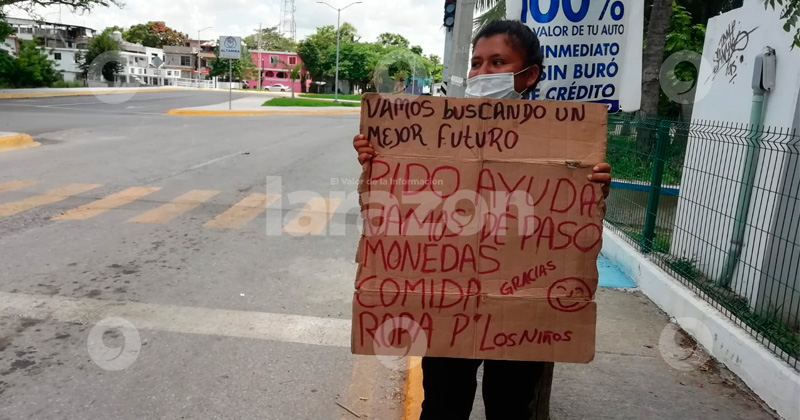 100%
VALOR DE TU AUTO
INMEDIATO
SIN BURÓ
DE CRÉDITO
VAMOS BUSCANDO UN
MEJOR FUTURO
PIDO AYUDA
VAMOS DE PASO
MONEDAS
COMIDA GRACIAS
ROPA P' LOS NIÑOS
El Valor de la Información
larazon